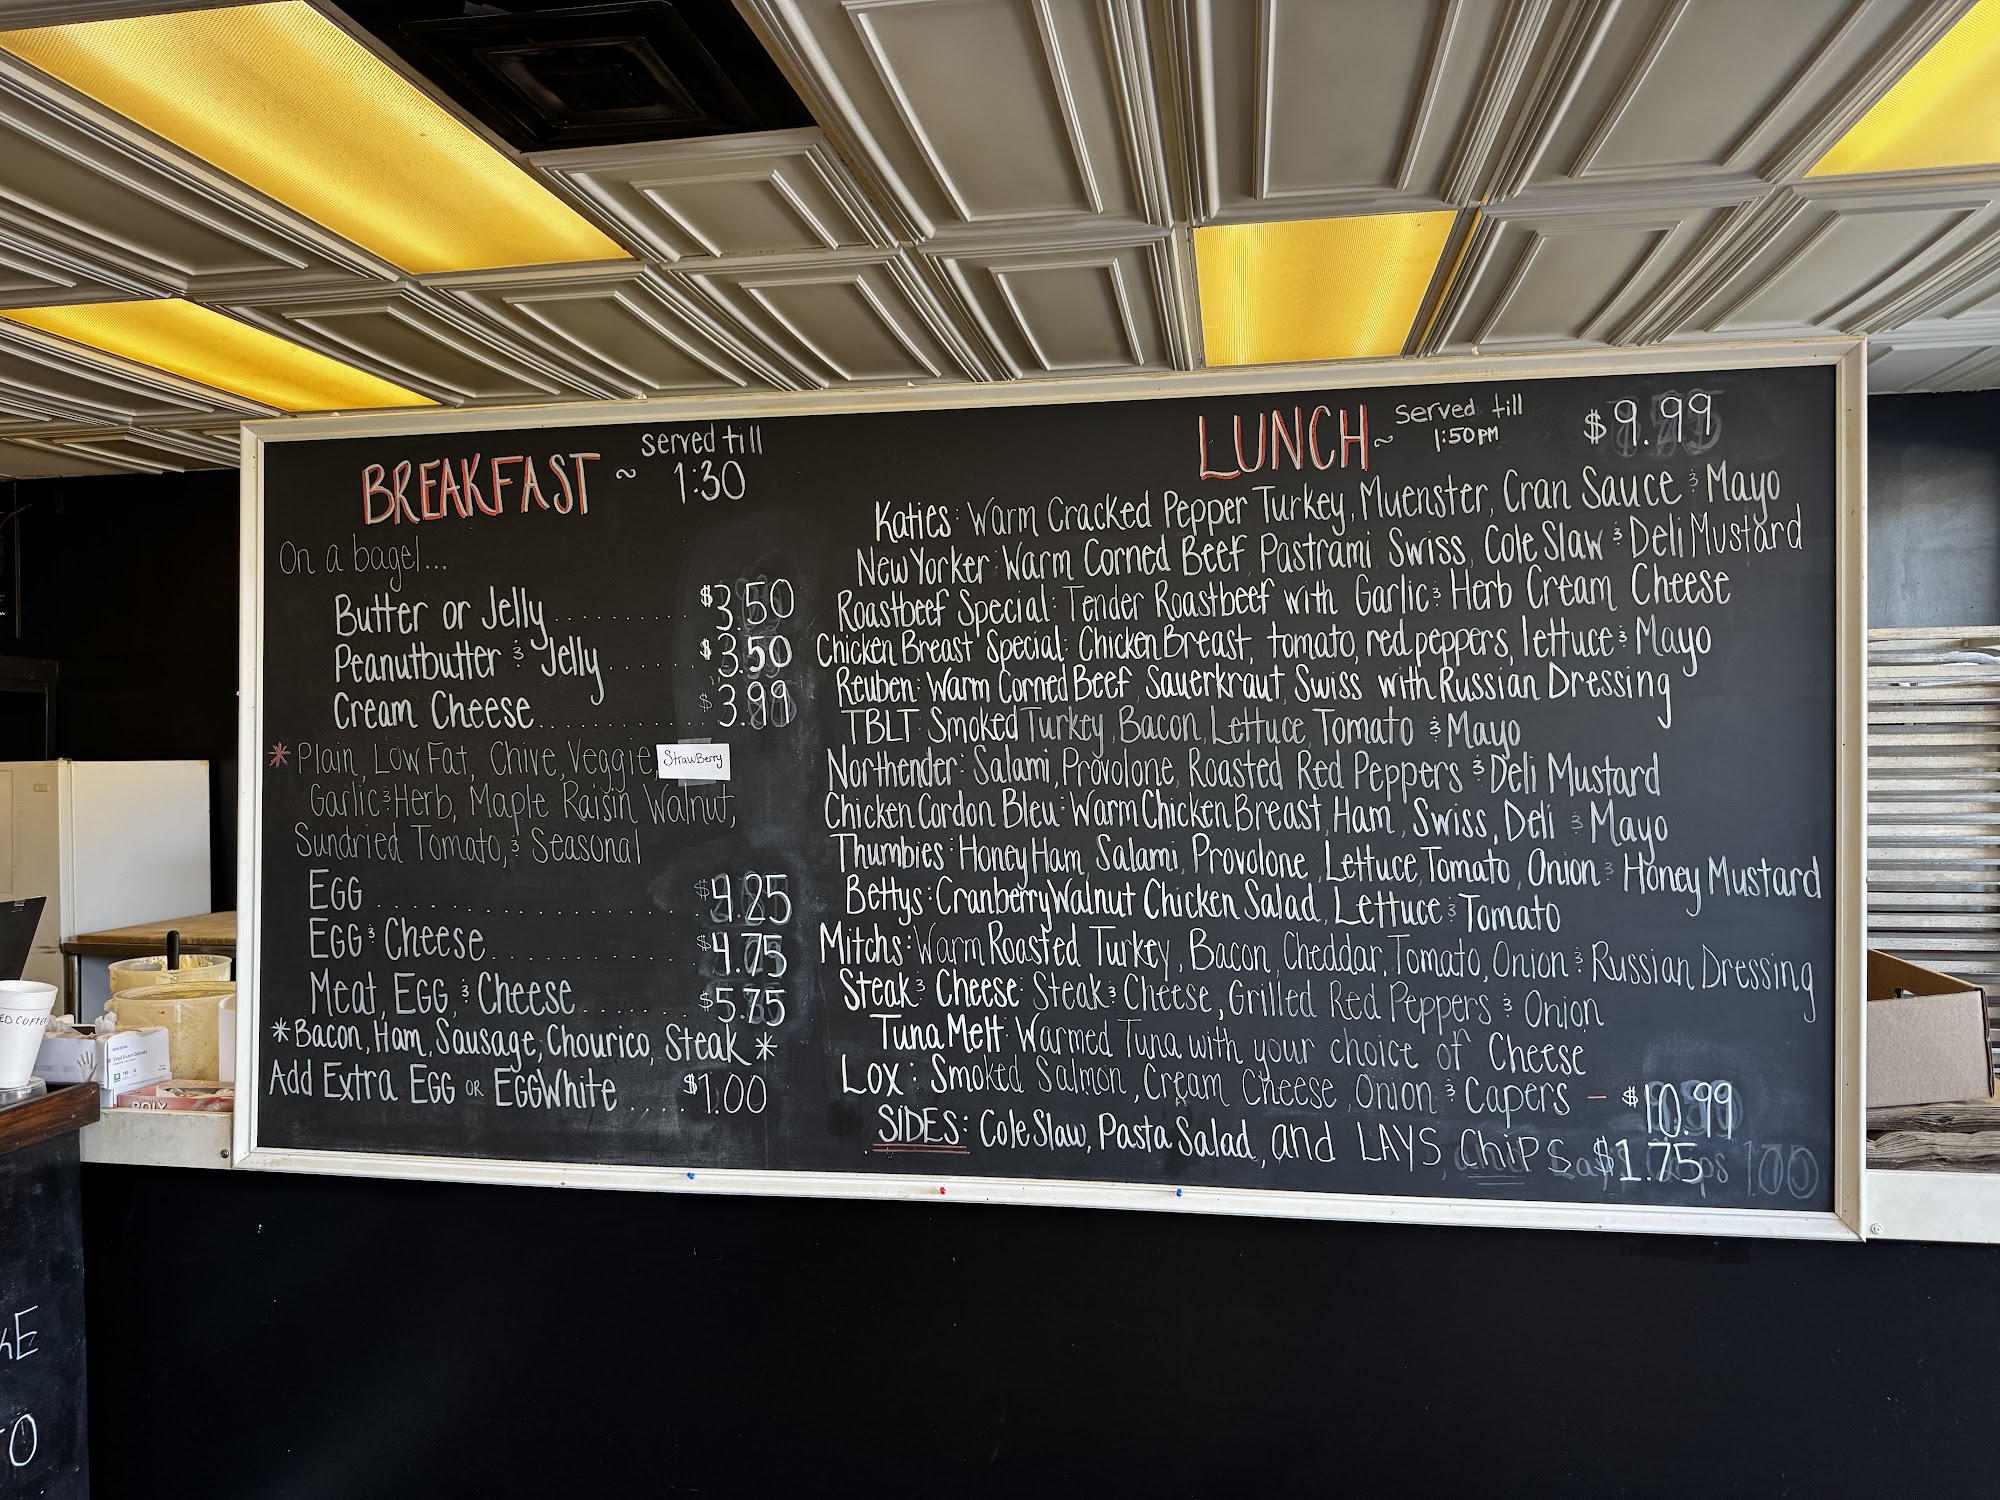 BREAKFAST ~ served till 1:30
On a bagel...
Butter or Jelly .......... $3.50
Peanutbutter & Jelly ...... $3.50
Cream Cheese .......... $3.99
* Plain, Low Fat, Chive, Veggie, StrawBerry
Garlic & Herb, Maple Raisin Walnut,
Sundried Tomato, & Seasonal
EGG .......... $4.25
EGG & Cheese .......... $4.75
Meat, EGG, & Cheese ...... $5.75
*Bacon, Ham, Sausage, Chourico, Steak *
Add Extra EGG OR EGGWhite .... $1.00
LUNCH ~ served till 1:50PM $9.99
Katies: Warm Cracked Pepper Turkey, Muenster, Cran Sauce & Mayo
New Yorker: Warm Corned Beef, Pastrami, Swiss, Cole Slaw & Deli Mustard
Roastbeef Special: Tender Roastbeef with Garlic & Herb Cream Cheese
Chicken Breast Special: Chicken Breast, tomato, red peppers, lettuce & Mayo
Reuben: Warm Corned Beef, Sauerkraut, Swiss with Russian Dressing
TBLT: Smoked Turkey, Bacon, Lettuce, Tomato & Mayo
Northender: Salami, Provolone, Roasted Red Peppers & Deli Mustard
Chicken Cordon Bleu: Warm Chicken Breast, Ham, Swiss, Deli & Mayo
Thumbies: Honey Ham, Salami, Provolone, Lettuce, Tomato, Onion & Honey Mustard
Bettys: Cranberry Walnut Chicken Salad, Lettuce & Tomato
Mitchs: Warm Roasted Turkey, Bacon, Cheddar, Tomato, Onion & Russian Dressing
Steak & Cheese: Steak & Cheese, Grilled Red Peppers & Onion
Tuna Melt: Warmed Tuna with your choice of Cheese
Lox: Smoked Salmon, Cream Cheese, Onion & Capers - $10.99
SIDES: Cole Slaw, Pasta Salad, and LAYS CHIPS $1.75